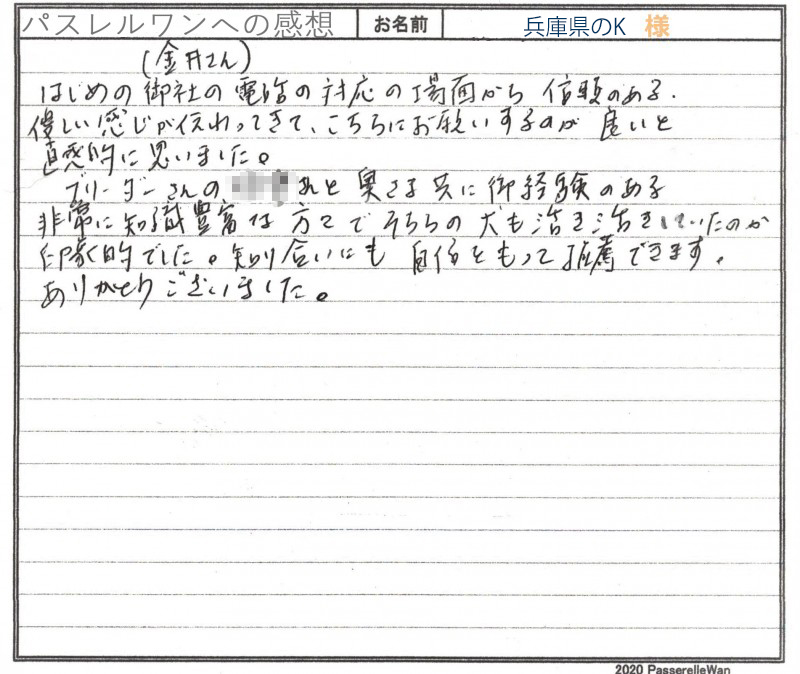 パスレルワンへの感想 お名前 兵庫県のK 様
(金井さん)
はじめの御社の電話の対応の場面から 信頼のある.
優しい感じが伝わってきて、こちらにお願いするのが良いと
直感的に思いました。
ブリーダーさんの れと奥さま共に御経験のある
非常に知識豊富な方々でそちらの犬も活き活きしていたのが
印象的でした。知り合いにも自信をもって推薦できます.
ありがとうございました。
2020 PasserelleWan